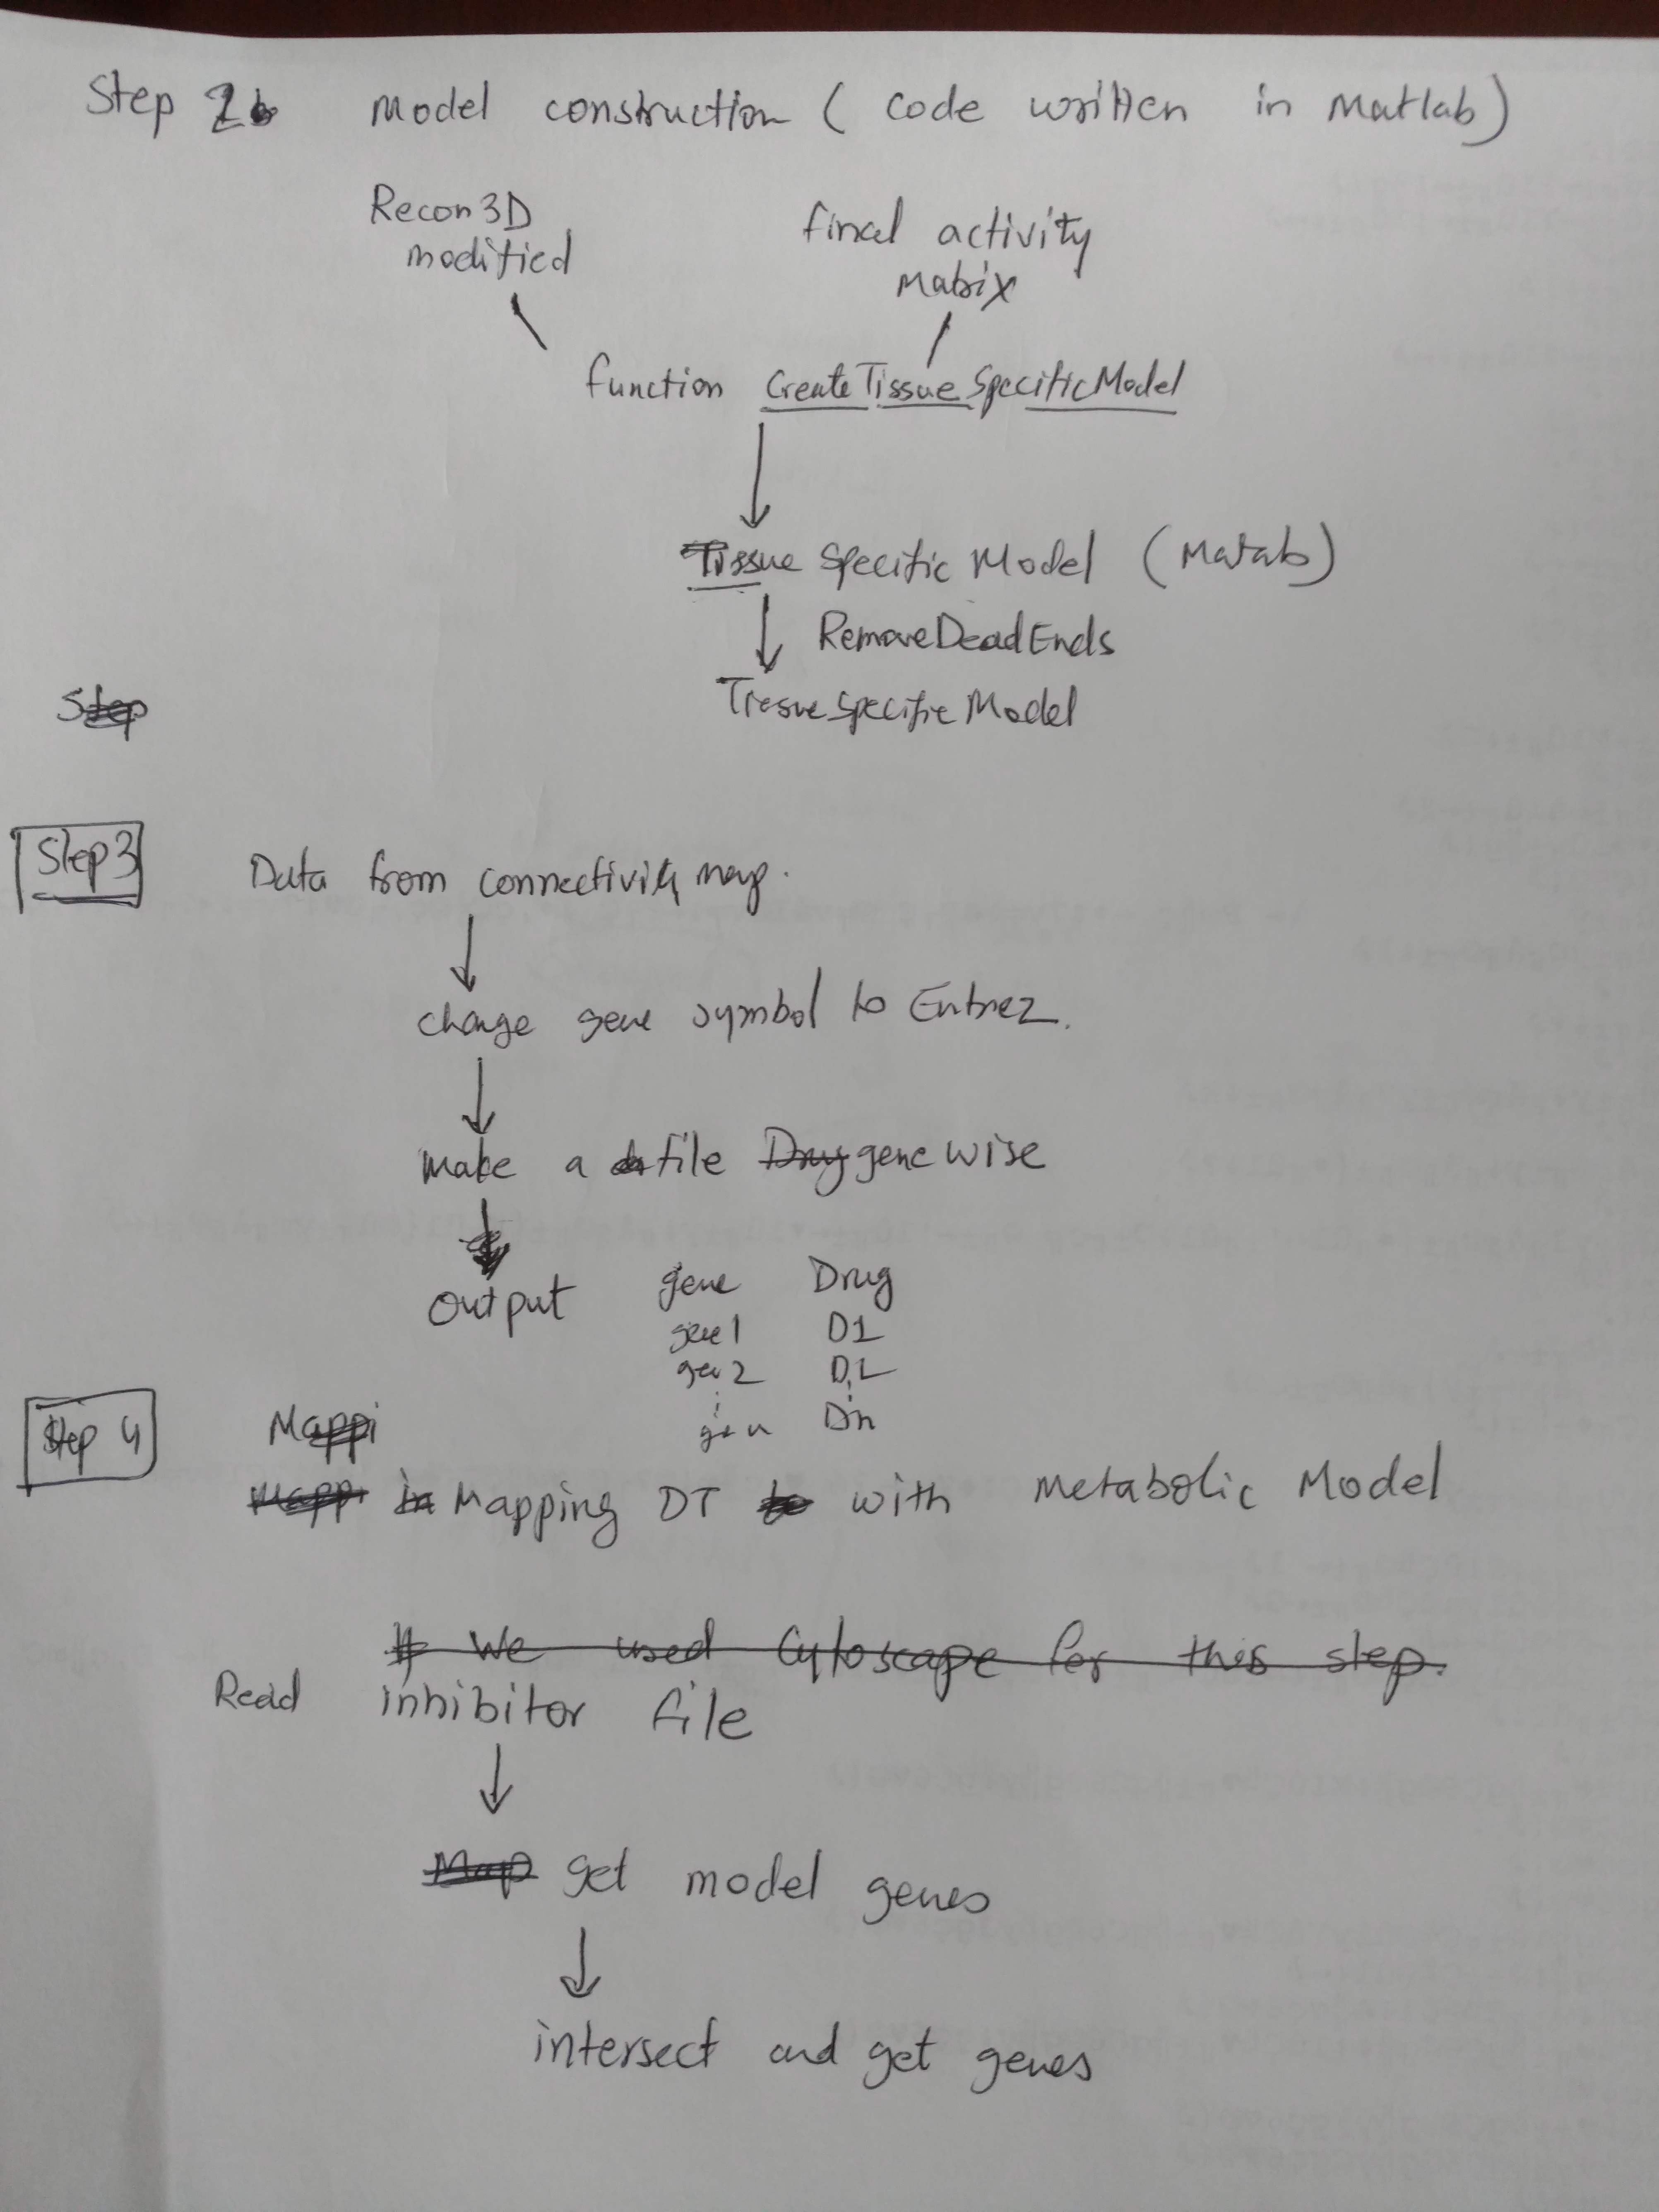 Step 2b Model construction ( code written in Matlab)
Recon3D modified
final activity matrix
function CreateTissueSpecificModel
Tissue Specific Model (Matab)
RemoveDeadEnds
TissueSpecific Model
Step
Step3
Data from connectivity map.
change gene symbol to Entrez.
make a file Drug gene wise
Output gene Drug
gene1 D1
gen2 D2
gen n Dn
Step 4
Mappi
Mappi in Mapping DT to with Metabolic Model
If We used Cytoscape for this step.
Read inhibitor file
Map get model genes
intersect and get genes